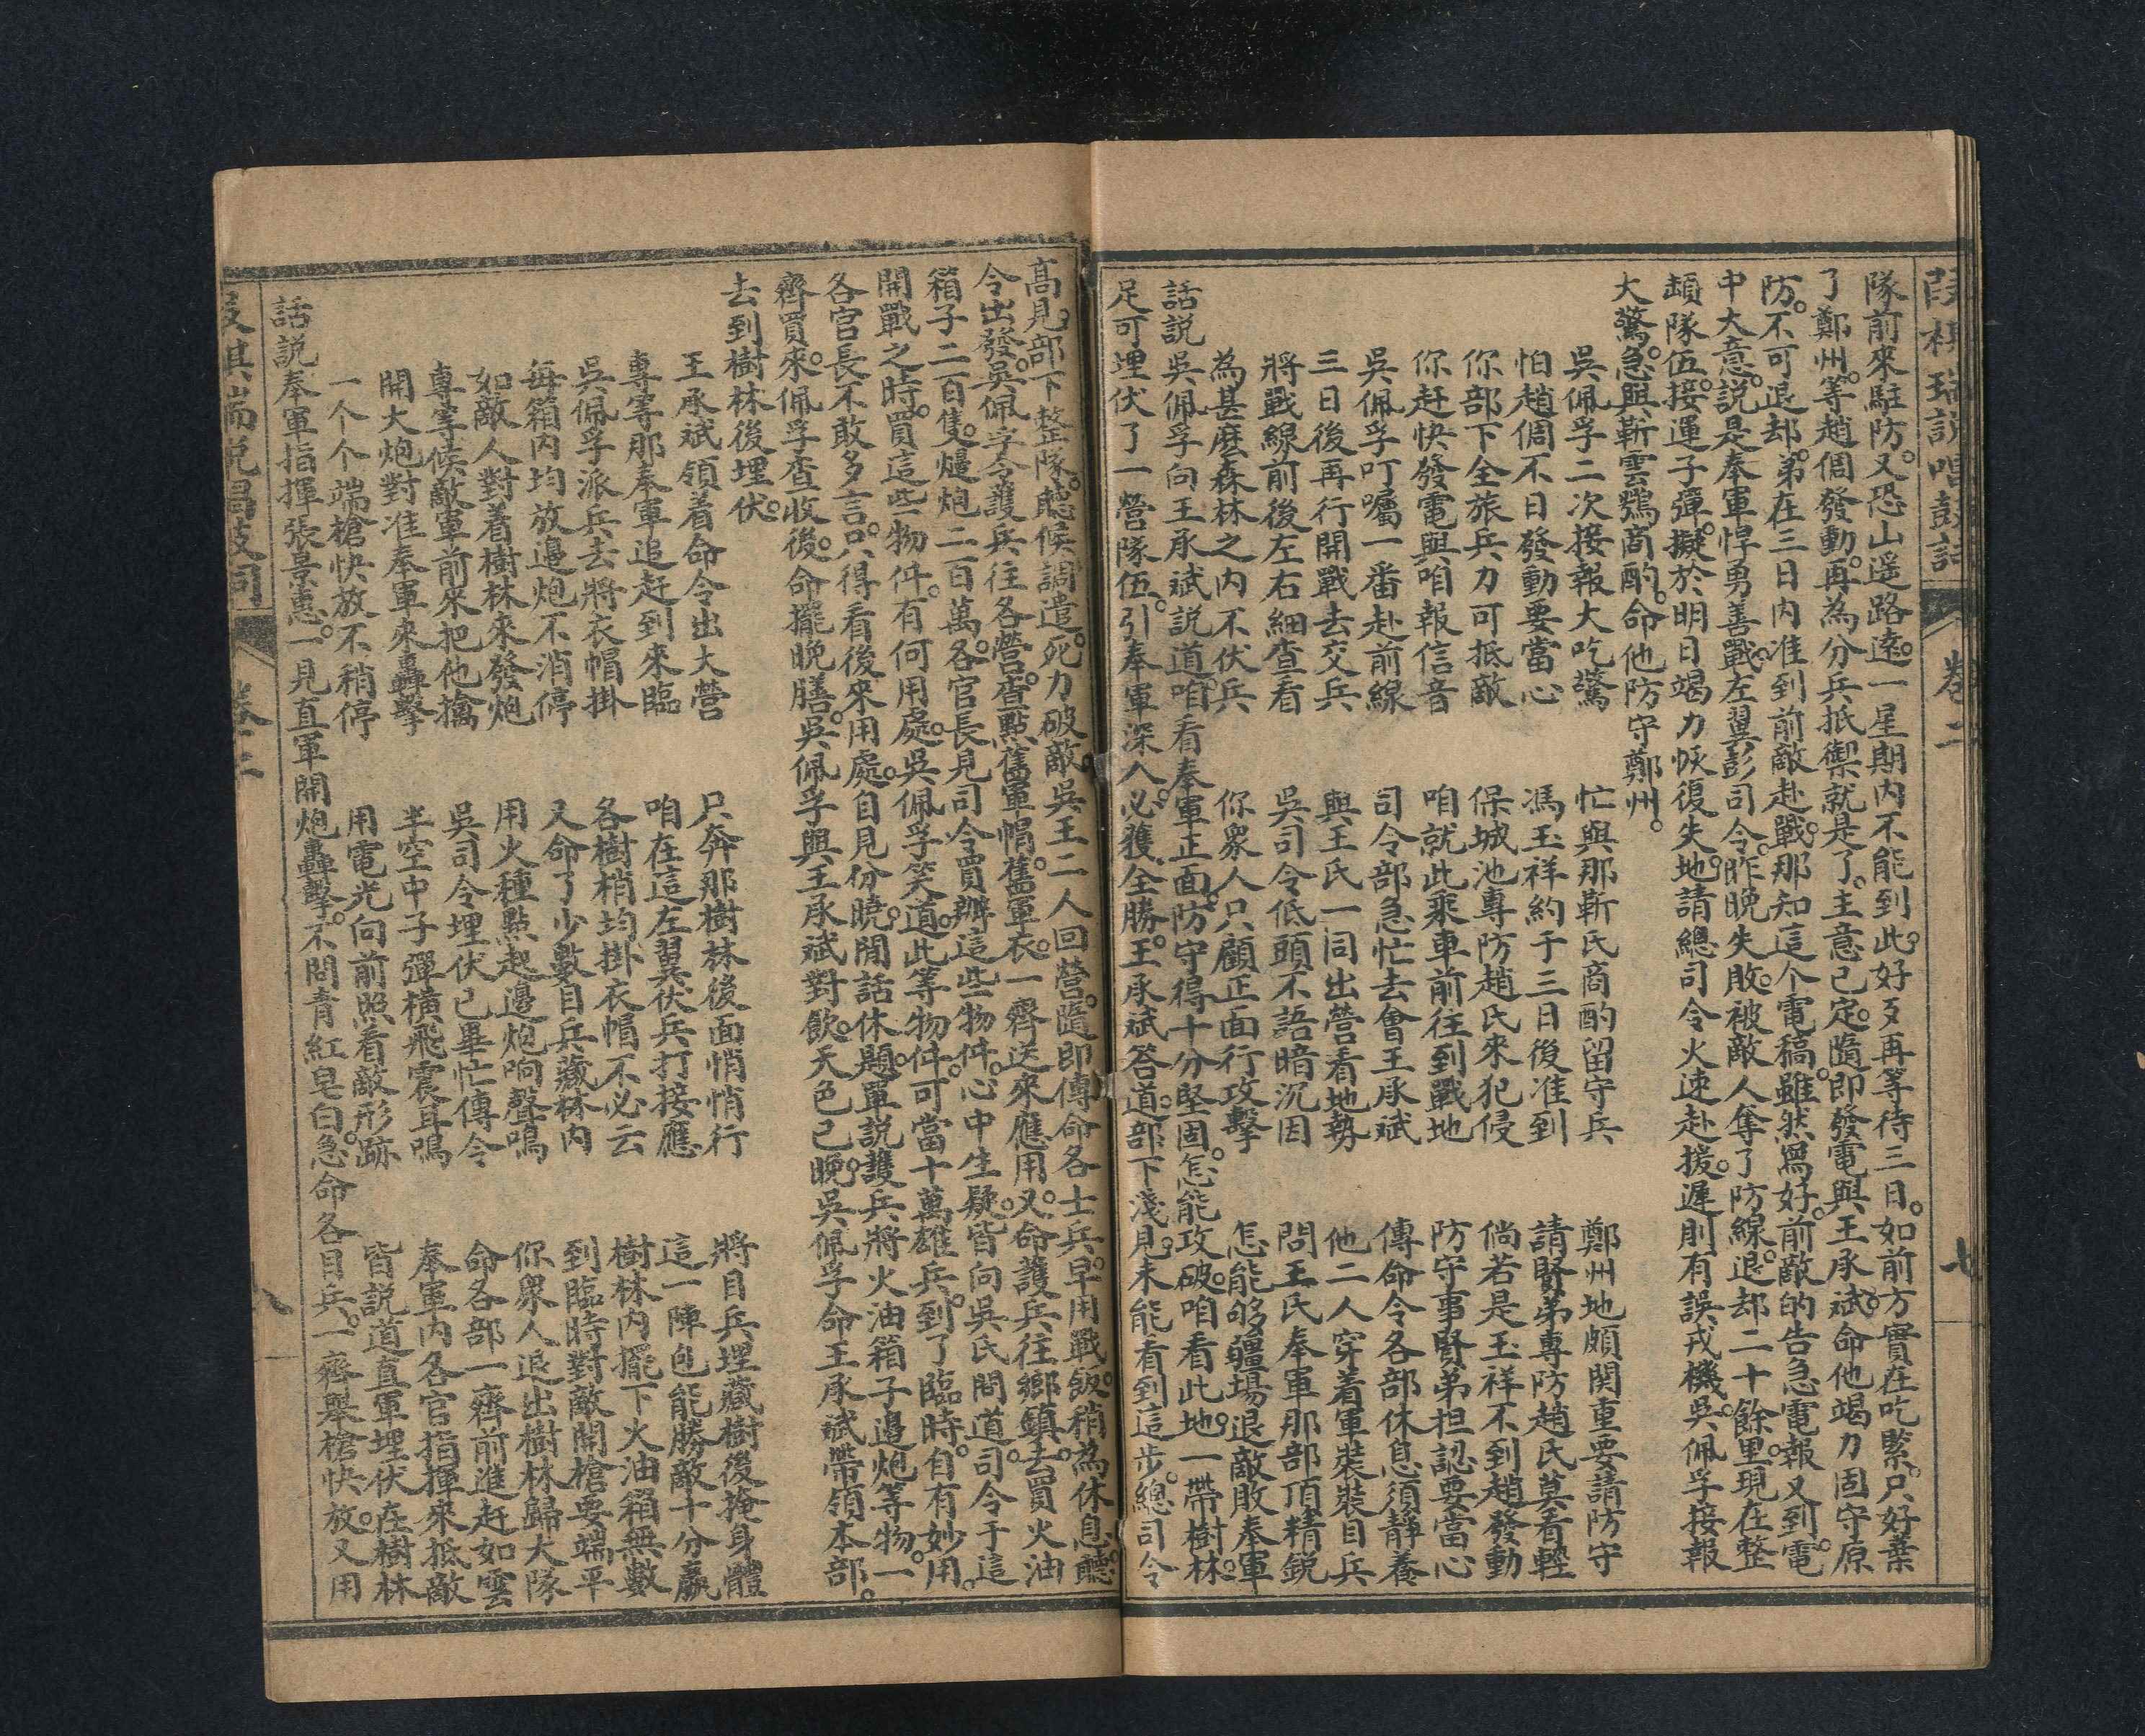 段祺瑞說唱鼓詞　卷二　七
隊前來駐防。又恐山遥路遠。一星期內不能到此。好歹再等待三日。如前方實在吃緊。只好棄
了鄭州。等趙倜發動。再為分兵抵禦就是了。主意已定。隨即發電與王承斌。命他竭力固守原
防。不可退却。弟在三日內准到前敵赴戰。那知這个電稿。雖然寫好。前敵的告急電報又到。電
中大意。説是奉軍悍勇善戰。左翼彭司令。昨晚失敗。被敵人奪了防線。退却二十餘里。現在整
頓隊伍。接運子彈。擬於明日竭力恢復失地。請總司令火速赴援。遲則有誤戎機。吳佩孚接報
大驚。急與靳雲鶚商酌。命他防守鄭州。
吳佩孚二次接報大吃驚　忙與那靳氏商酌留守兵　鄭州地頗関重要請防守
怕趙倜不日發動要當心　馮玉祥約于三日後准到　請賢弟專防趙氏莫看輕
你部下全旅兵力可抵敵　保城池專防趙氏來犯侵　倘若是玉祥不到趙發動
你赶快發電與咱報信音　咱就此乘車前往到戰地　防守事賢弟担認要當心
吳佩孚叮囑一番赴前線　司令部急忙去會王承斌　傳命令各部休息須靜養
三日後再行開戰去交兵　與王氏一同出營看地勢　他二人穿着軍裝裝目兵
將戰線前後左右細查看　吳司令低頭不語暗沉因　問王氏奉軍那部頂精銳
為甚麽森林之內不伏兵　你衆人只顧正面行攻擊　怎能够疆場退敵敗奉軍
話説　吳佩孚向王承斌説道。咱看奉軍正面。防守得十分堅固。怎能攻破。咱看此地。一帶樹林。
足可埋伏了一營隊伍。引奉軍深入。必獲全勝。王承斌答道。部下淺見。未能看到這步。總司令
高見。部下整隊。聽候調遣。死力破敵。吳王二人回營。隨即傳命各士兵。早用戰飯。稍為休息。聽
令出發。吳佩孚令護兵往各營。查點舊軍帽。舊軍衣。一齊送來應用。又命護兵往鄉鎮。去買火油
箱子二百隻。爆炮二百萬。各官長見司令買辦這些物件。心中生疑。皆向吳氏問道。司令于這
開戰之時。買這些物件。有何用處。吳佩孚笑道。此等物件。可當十萬雄兵。到了臨時。自有妙用。
各官長不敢多言。只得看後來用處。自見份曉。閒話休題。單説護兵將火油箱子邊炮等物。一
齊買來。佩孚查收後。命擺晚膳。吳佩孚與王承斌對飲。天色已晚。吳佩孚命王承斌帶領本部。
去到樹林後埋伏。
王承斌領着命令出大營　只奔那樹林後面悄悄行　將目兵埋藏樹後掩身體
專等那奉軍追赶到來臨　咱在這左翼伏兵打接應　這一陣包能勝敵十分贏
吳佩孚派兵去將衣帽掛　各樹梢均掛衣帽不必云　樹林內擺下火油箱無數
每箱內均放邊炮不消停　又命了少數目兵藏林內　到臨時對敵開槍要端平
如敵人對着樹林來發炮　用火種點起邊炮响聲鳴　你衆人退出樹林歸大隊
專等候敵軍前來把他擒　吳司令埋伏已畢忙傳令　命各部一齊前進赶如雲
開大炮對准奉軍來轟擊　半空中子彈橫飛震耳鳴　奉軍內各官指揮來抵敵
一个个端槍快放不稍停　用電光向前照看敵形跡　皆説道直軍埋伏在樹林
話説　奉軍指揮張景惠。一見直軍開炮轟擊。不問青紅皂白。急命各目兵。一齊舉槍快放。又用
段祺瑞說唱鼓詞　卷二　八